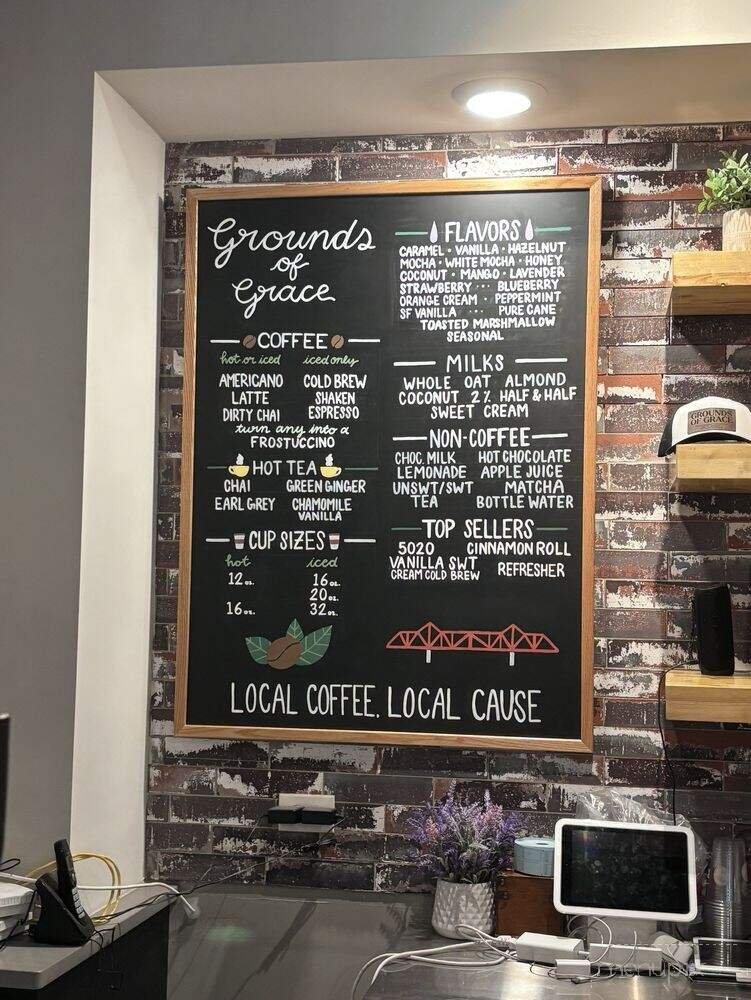 Grounds
of
Grace
COFFEE
hot or iced iced only
AMERICANO COLD BREW
LATTE SHAKEN
DIRTY CHAI ESPRESSO
turn any into a
FROSTUCCINO
HOT TEA
CHAI GREEN GINGER
EARL GREY CHAMOMILE
VANILLA
CUP SIZES
hot iced
12 oz. 16 oz.
20 oz.
16 oz. 32 oz.
FLAVORS
CARAMEL • VANILLA • HAZELNUT
MOCHA • WHITE MOCHA • HONEY
COCONUT • MANGO • LAVENDER
STRAWBERRY ••• BLUEBERRY
ORANGE CREAM • PEPPERMINT
SF VANILLA ••• PURE CANE
TOASTED MARSHMALLOW
SEASONAL
MILKS
WHOLE OAT ALMOND
COCONUT 2% HALF & HALF
SWEET CREAM
NON-COFFEE
CHOC. MILK HOT CHOCOLATE
LEMONADE APPLE JUICE
UNSWT/SWT MATCHA
TEA BOTTLE WATER
TOP SELLERS
5020 CINNAMON ROLL
VANILLA SWT
CREAM COLD BREW REFRESHER
LOCAL COFFEE. LOCAL CAUSE
GROUNDS
OF GRACE
menupix